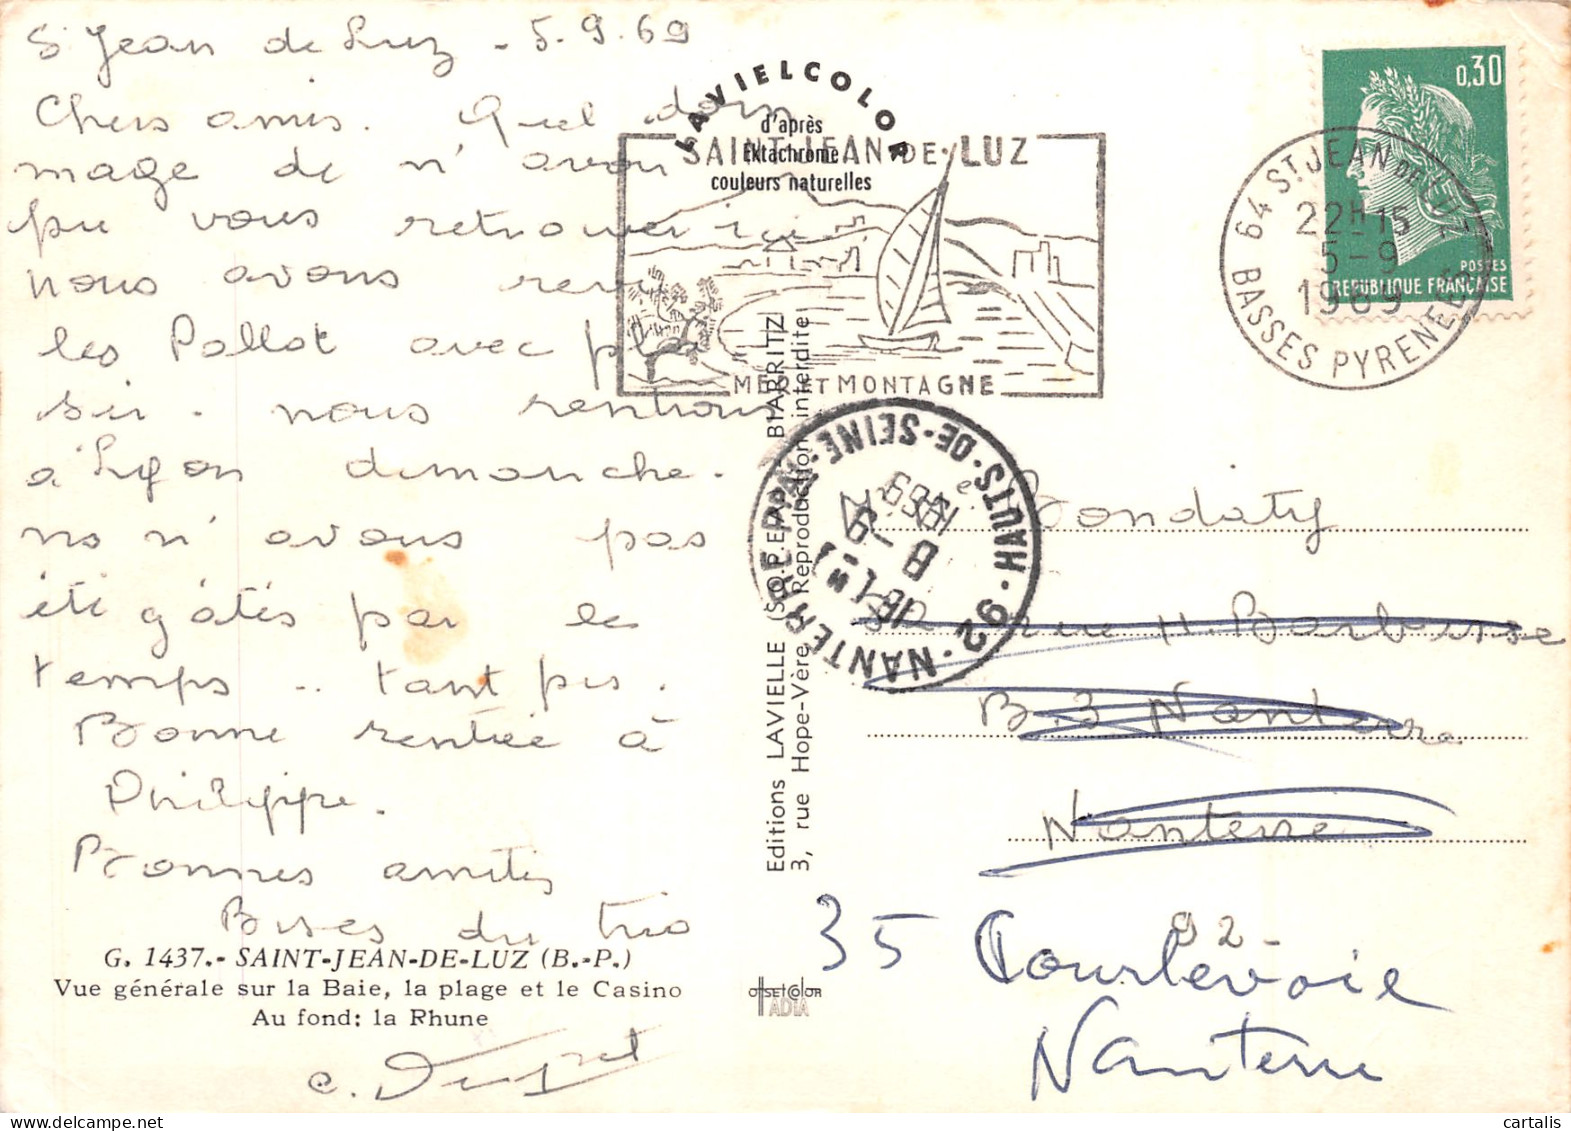 S. Jean de Luz - 5.9.69
Chers amis. Quel dom
mage de n'avoir
pu vous retrouver ici.
nous avons revu
les Pallot avec plai
sir. nous rentrons
à Lyon dimanche.
ns n'avons pas
été gâtés par le
temps .. tant pis.
Bonne rentrée à
Philippe.
Bonnes amitiés
Bises du trio
G. 1437.- SAINT-JEAN-DE-LUZ (B.-P.)
Vue générale sur la Baie, la plage et le Casino
Au fond: la Rhune
LAVIELCOLOR
d'après
Ektachrome
couleurs naturelles
SAINT JEAN-DE-LUZ
MER ET MONTAGNE
Editions LAVIELLE (S.O.P.E.P.) BIARRITZ
3, rue Hope-Vère Reproduction interdite
OFFSETCOLOR
ADIA
0,30
POSTES
REPUBLIQUE FRANÇAISE
64 ST JEAN DE LUZ
22H15
5-9
1969
BASSES PYRENEES
92 - NANTERRE PPAL - HAUTS-DE-SEINE
8-9
1969
Bondaty
rue H. Barbusse
B.3 Nanterre
Nanterre
92-
35 Courbevoie
Nanterre
cartalis